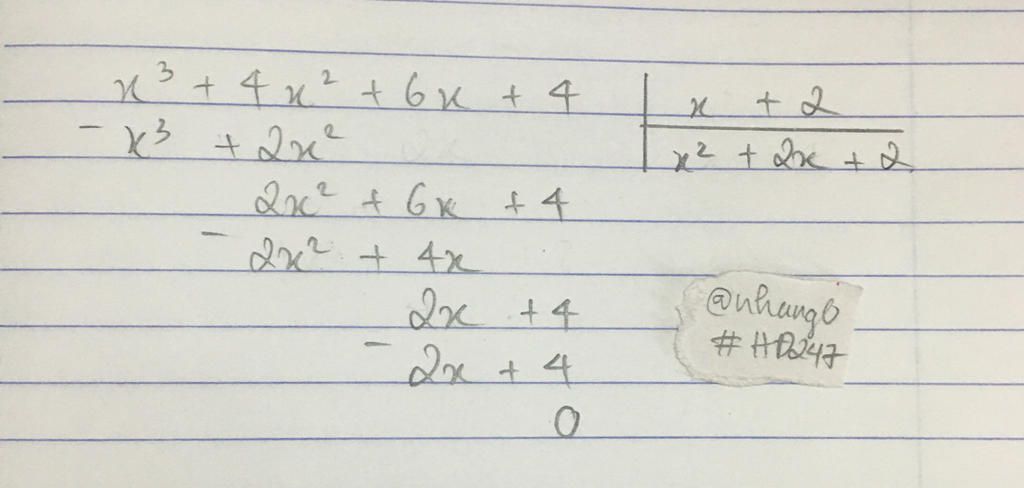 x³ + 4x² + 6x + 4 | x + 2
- x³ + 2x² | x² + 2x + 2
2x² + 6x + 4
- 2x² + 4x
2x + 4
- 2x + 4
0
@nhung6
# HD247